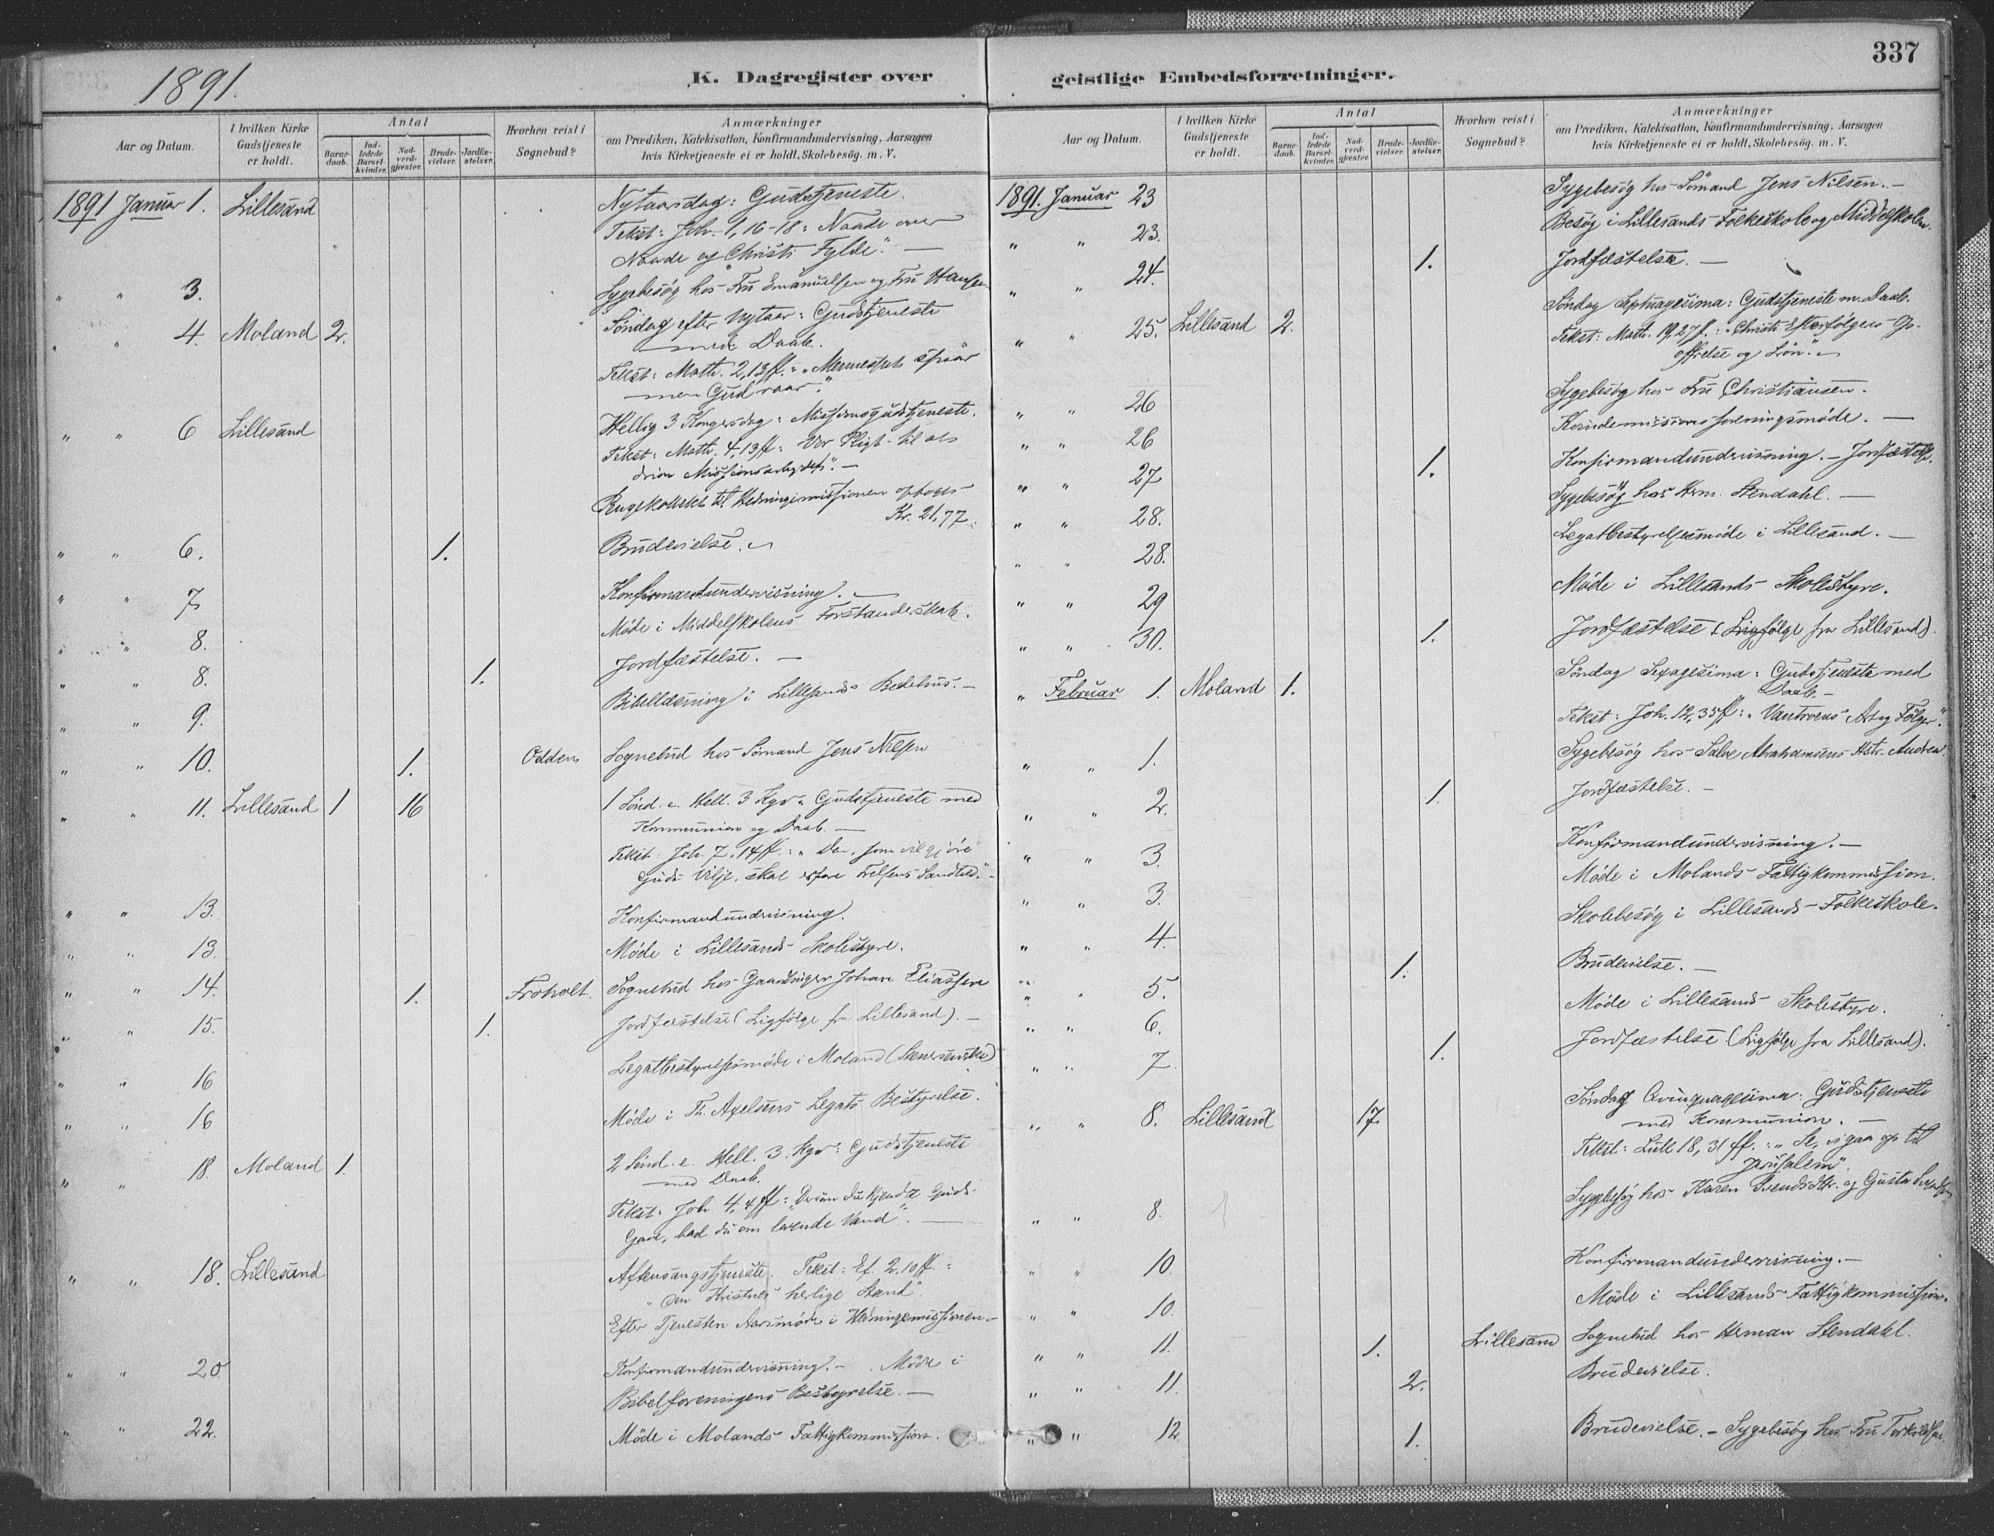 337
1891.
K. Dagregister over
geistlige Embedsforretninger.
Aar og Datum.
I hvilken Kirke Gudstjeneste er holdt.
Antal
Barnedaab.
Indledede Barselkvinder.
Nadverdgjester.
Brudevielser.
Jordfæstelser.
Hvorhen reist i Sognebud?
Anmærkninger
om Prædiken, Katekisation, Konfirmandundervisning, Aarsagen
hvis Kirketjeneste ei er holdt, Skolebesøg. m. V.
1891 Januar 1. Lillesand Nytaarsdag: Gudstjeneste.
Tekst: Joh. 1, 16-18: Naade over
Naade og Christi Fylde". —
" " 3. Sygebesøg hos Fru Emanuelsen og Fru Hansen
" " 4. Moland 2. Søndag efter Nytaar: Gudstjeneste
med Daab.
Tekst: Matth. 2, 13 ff.: "Mennesket spaar
men Gud raar."
" " 6 Lillesand Hellig 3 Kongersdag: Missionsgudstjeneste.
Tekst: Matth. 4, 13 ff: Vor Pligt til at
drive Missionsarbejdet". —
til Hedningemissionen optoges
Kr. 21,77.
" " 6. 1. Brudevielse.
" " 7 Konfirmandundervisning. —
" " 8. Møde i Middelskolens Forstanderskab.
" " 8. 1. Jordfæstelse. —
" " 9. Bibellæsning i Lillesands Bedehus. —
" " 10. 1. Odden Sognebud hos Sømand Jens Nilsen
" " 11. Lillesand 1 16 1 Sønd. e. Hell. 3 Kgr. Gudstjeneste med
Kommunion og Daab. —
Tekst. Joh. 7, 14 ff.: "Den, som vil gjøre
Guds Vilje, skal erfare
" " 13. Konfirmandundervisning.
" " 13. Møde i Lillesands Skolestyre.
" " 14. 1. Froholt. Sognebud hos Gaardbruger Johan Eliassen
" " 15. 1. Jordfæstelse (Ligfølge fra Lillesand). —
" " 16 Legatbestyrelsesmøde i Moland
" " 16 Møde i Th. Axelsens Legats Bestyrelse.
" " 18. Moland 1. 2 Sønd. e. Hell. 3. Kgr: Gudstjeneste
med Daab.
Tekst: Joh. 4, 4 ff: "Dersom du kjendte Guds
Gave, bad du om levende Vand". —
" " 18. Lillesand Aftensangstjeneste. Tekst: Ef. 2, 10 ff.:
"Den Kristnes herlige Stand".
Efter Tjenesten Aarsmøde i Hedningemissionen. —
" " 20 Konfirmandundervisning. — Møde i
Bibelforeningens Bestyrelse. —
" " 22. Møde i Molands Fattigkommission.
Aar og Datum.
I hvilken Kirke Gudstjeneste er holdt.
Antal
Barnedaab.
Indledede Barselkvinder.
Nadverdgjester.
Brudevielser.
Jordfæstelser.
Hvorhen reist i Sognebud?
Anmærkninger
om Prædiken, Katekisation, Konfirmandundervisning, Aarsagen
hvis Kirketjeneste ei er holdt, Skolebesøg. m. V.
1891. Januar 23 Sygebesøg hos Sømand Jens Nilsen. —
" " 23. Besøg i Lillesands Folkeskole og Middelskolen.
" " 24. 1. Jordfæstelse. —
" " 25. Lillesand 2. Søndag Septuagesima: Gudstjeneste m. Daab.
Tekst: Matth. 19, 27 f.: "Christi Efterfølgers Op-
offrelse og Løn."
" " 26 Sygebesøg hos Fru Christiansen.
" " 26 Kvindemissionsforeningsmøde. —
" " 27 1. Konfirmandundervisning. — Jordfæstelse.
" " 28. Sygebesøg hos Herm. Stendahl. —
" " 28. Legatbestyrelsesmøde i Lillesand. —
" " 29 Møde i Lillesands Skolestyre.
" " 30. 1. Jordfæstelse (Ligfølge fra Lillesand).
" Februar 1. Moland 1. Søndag Sexagesima: Gudstjeneste med
Daab. —
Tekst: Joh. 12, 35 ff: "Vantroens Art og Følger".
" " 1. Sygebesøg hos Salve Abrahamsens Andrea.
" " 2. 1. Jordfæstelse. —
" " 3. Konfirmandundervisning. —
" " 3. Møde i Molands Fattigkommission.
" " 4. Skolebesøg i Lillesands Folkeskole.
" " 5. 1. Brudevielse. —
" " 6. Møde i Lillesands Skolestyre.
" " 7. 1. Jordfæstelse (Ligfølge fra Lillesand).
" " 8. Lillesand 17 Søndag Quinquagesima: Gudstjeneste
med Kommunion. —
Tekst: Luk 18, 31 ff.: "Se, vi gaa op til
Jerusalem".
" " 8. 1 Sygebesøg hos Karen og
" " 10. Konfirmandundervisning. —
" " 10. Møde i Lillesands Fattigkommission.
" " 11. 1. Lillesand Sognebud hos Herman Stendahl.
" " 11. 2. Brudevielse.
" " 12. 1. Brudevielse. — Sygebesøg hos Fru